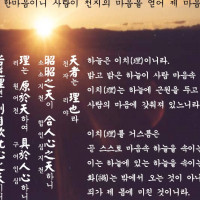 한마음이니 사람이 천지의 마음을 얻어 제 마음
하늘은 이치[理]이니라.
밝고 밝은 하늘이 사람 마음속
이치[理]는 하늘에 근원을 두고
사람의 마음에 갖춰져 있느니라
이치[理]를 거스름은
곧 스스로 마음속 하늘을 속이는
이는 하늘에 있는 하늘을 속이는
화(禍)는 밖에서 오는 것이 아니
죄가 제 몸에 미친 것이니라.
天者는 理也라
천자 리야
昭昭之天이 合人心之天하니
소소지천 합인심지천
理는 原於天하여 具於人心하니